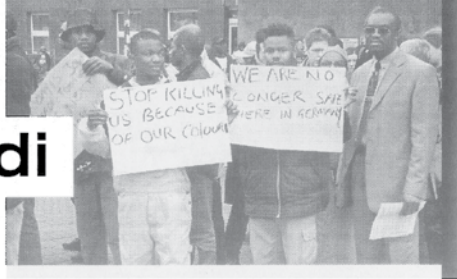 STOP KILLING
US BECAUSE
OF OUR COLOUR
WE ARE NO
LONGER SAFE
HERE IN GERMANY
di